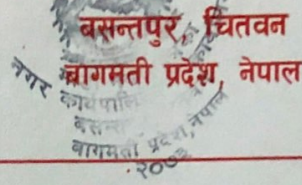 बसन्तपुर, चितवन
बागमती प्रदेश, नेपाल
नगर कार्यपालि
बसन्त
बागमती प्रदेश, नेपाल
२०७३